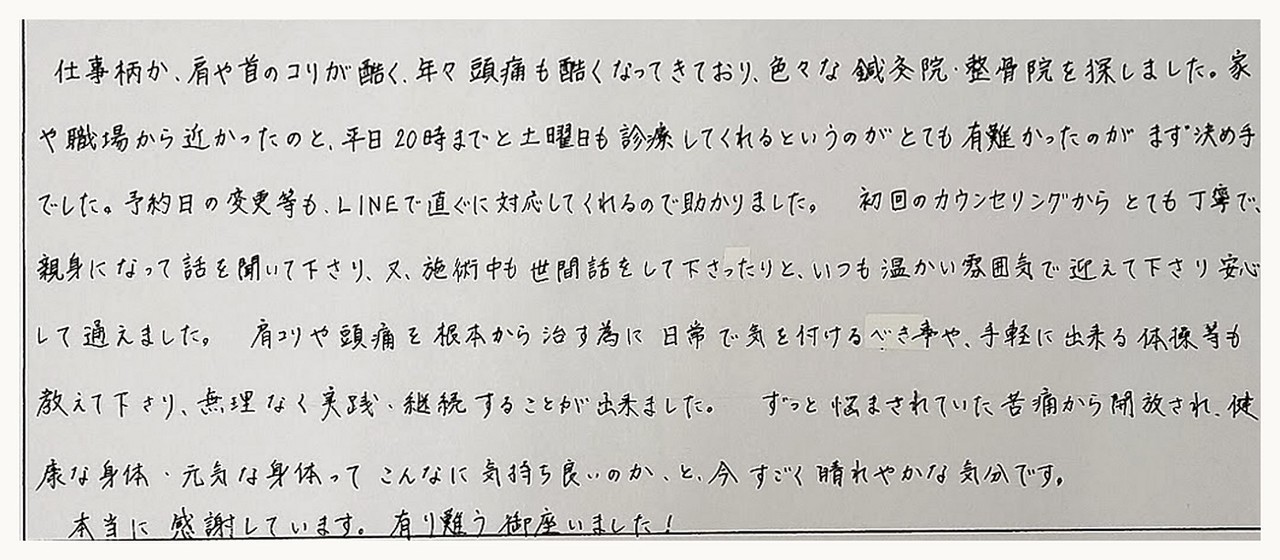 仕事柄か、肩や首のコリが酷く、年々頭痛も酷くなってきており、色々な鍼灸院・整骨院を探しました。家
や職場から近かったのと、平日20時までと土曜日も診療してくれるというのがとても有難かったのがまず決め手
でした。予約日の変更等も、LINEで直ぐに対応してくれるので助かりました。 初回のカウンセリングからとても丁寧で、
親身になって話を聞いて下さり、又、施術中も世間話をして下さったりと、いつも温かい雰囲気で迎えて下さり安心
して通えました。 肩コリや頭痛を根本から治す為に日常で気を付けるべき事や、手軽に出来る体操等も
教えて下さり、無理なく実践・継続することが出来ました。 ずっと悩まされていた苦痛から開放され、健
康な身体・元気な身体ってこんなに気持ち良いのか、と、今すごく晴れやかな気分です。
本当に感謝しています。有り難う御座いました!